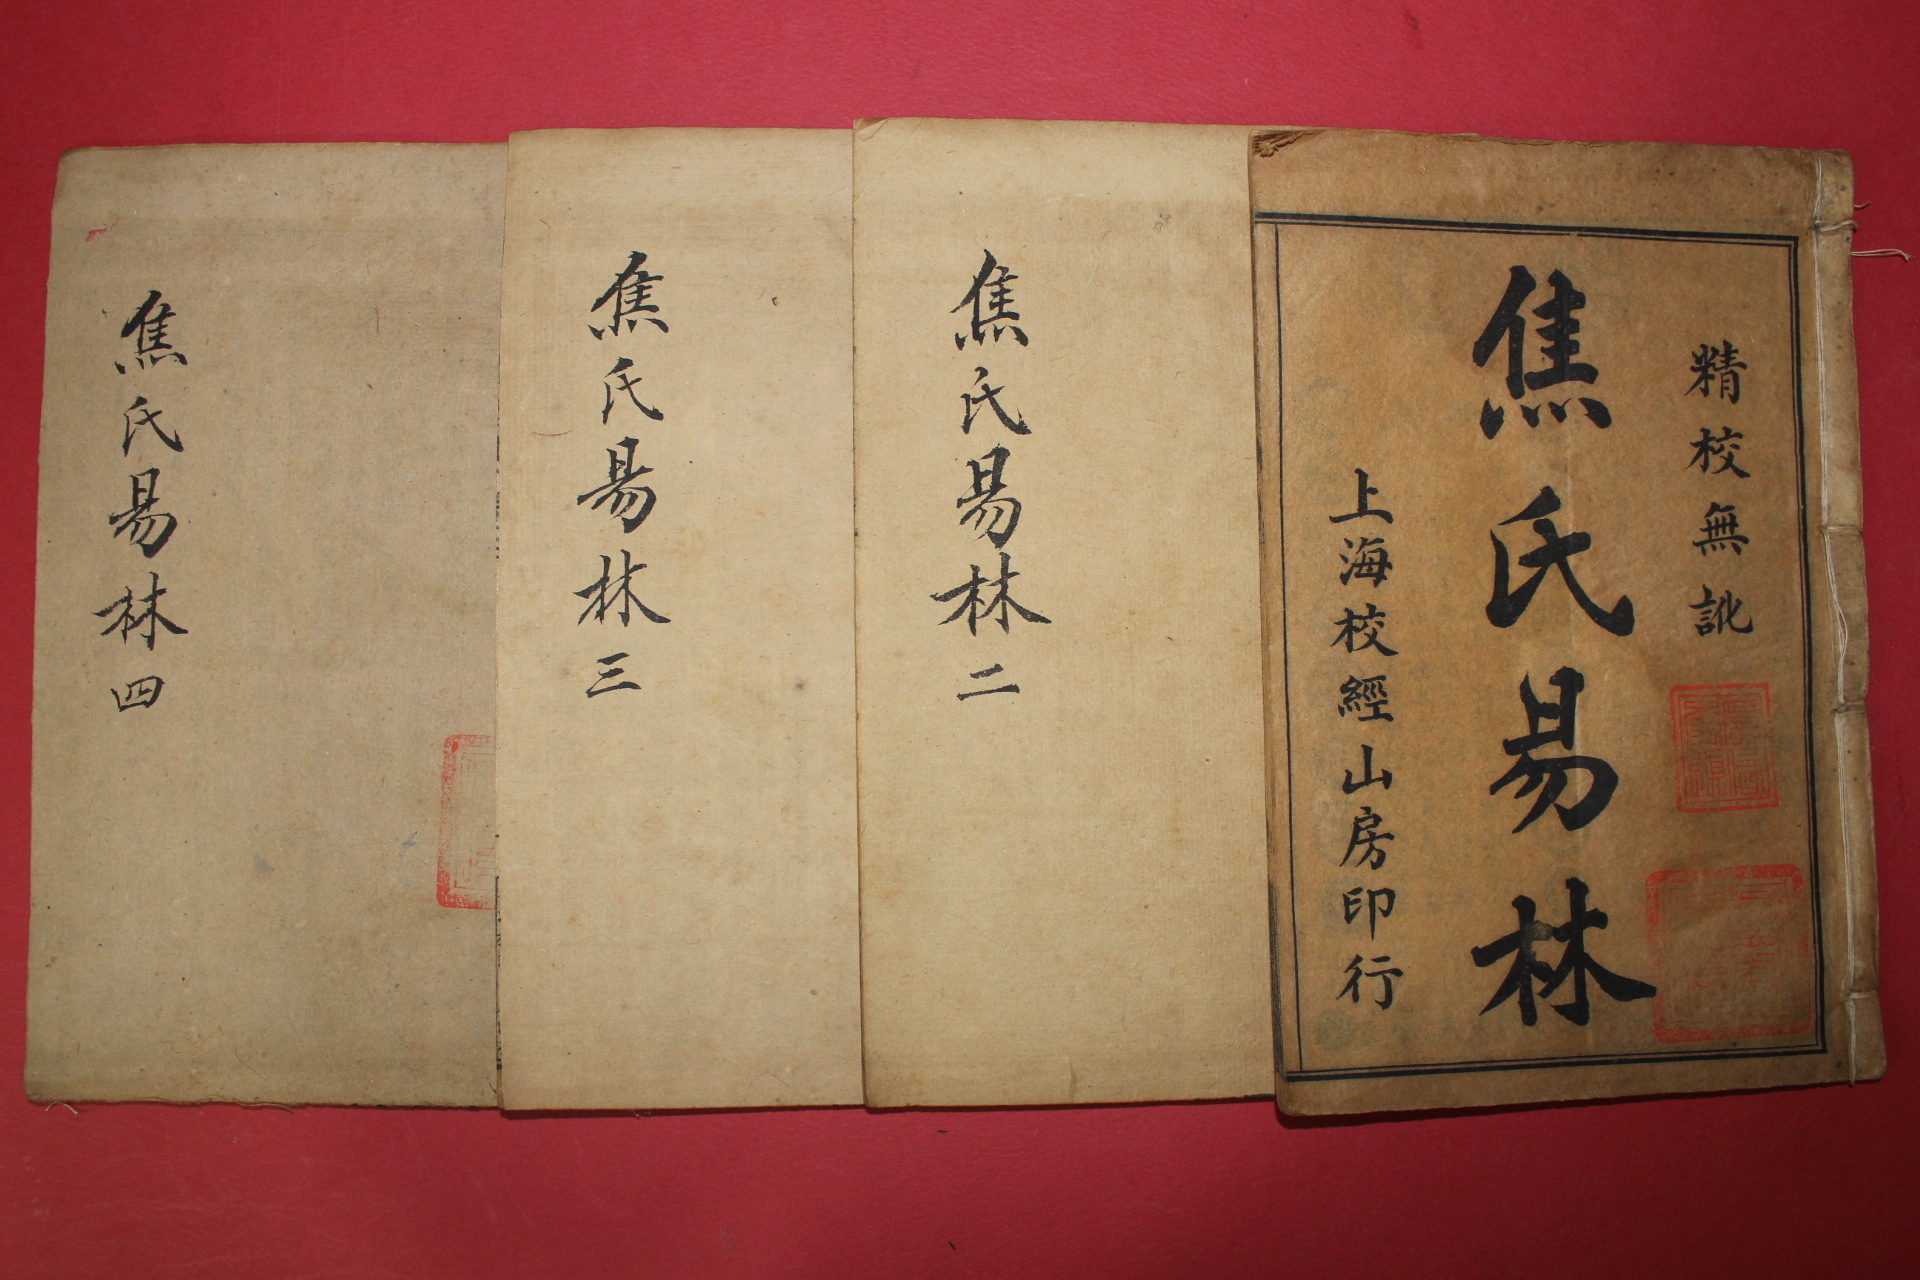 精校無訛
焦氏易林
上海校經山房印行
焦氏易林二
焦氏易林三
焦氏易林四